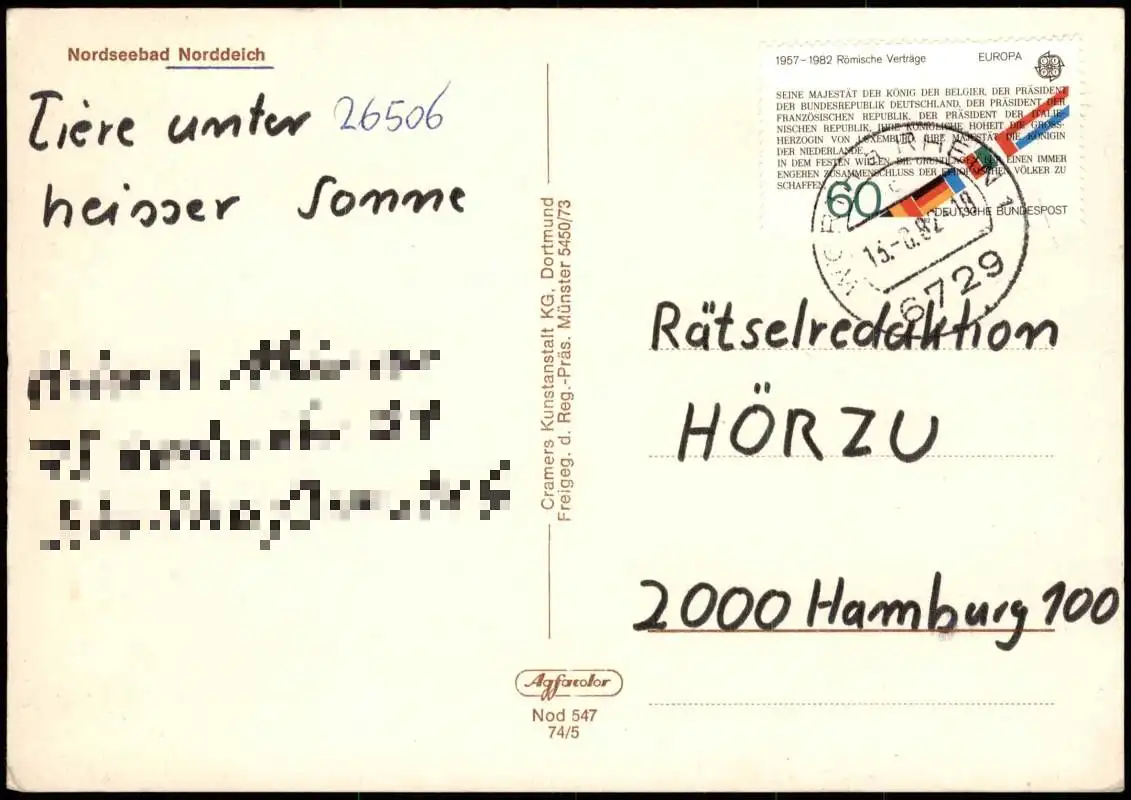 Nordseebad Norddeich
Tiere unter 26506
heisser Sonne
Cramers Kunstanstalt KG, Dortmund
Freigeg. d. Reg.-Präs. Münster 5450/73
Agfacolor
Nod 547
74/5
1957–1982 Römische Verträge EUROPA
SEINE MAJESTÄT DER KÖNIG DER BELGIER, DER PRÄSIDENT
DER BUNDESREPUBLIK DEUTSCHLAND, DER PRÄSIDENT DER
FRANZÖSISCHEN REPUBLIK, DER PRÄSIDENT DER ITALIE-
NISCHEN REPUBLIK, IHRE KÖNIGLICHE HOHEIT DIE GROSS-
HERZOGIN VON LUXEMBURG, IHRE MAJESTÄT DIE KÖNIGIN
DER NIEDERLANDE,
IN DEM FESTEN WILLEN, DIE GRUNDLAGEN FÜR EINEN IMMER
ENGEREN ZUSAMMENSCHLUSS DER EUROPÄISCHEN VÖLKER ZU
SCHAFFEN,
60
DEUTSCHE BUNDESPOST
RHEIN 1
6729
Rätselredaktion
HÖRZU
2000 Hamburg 100